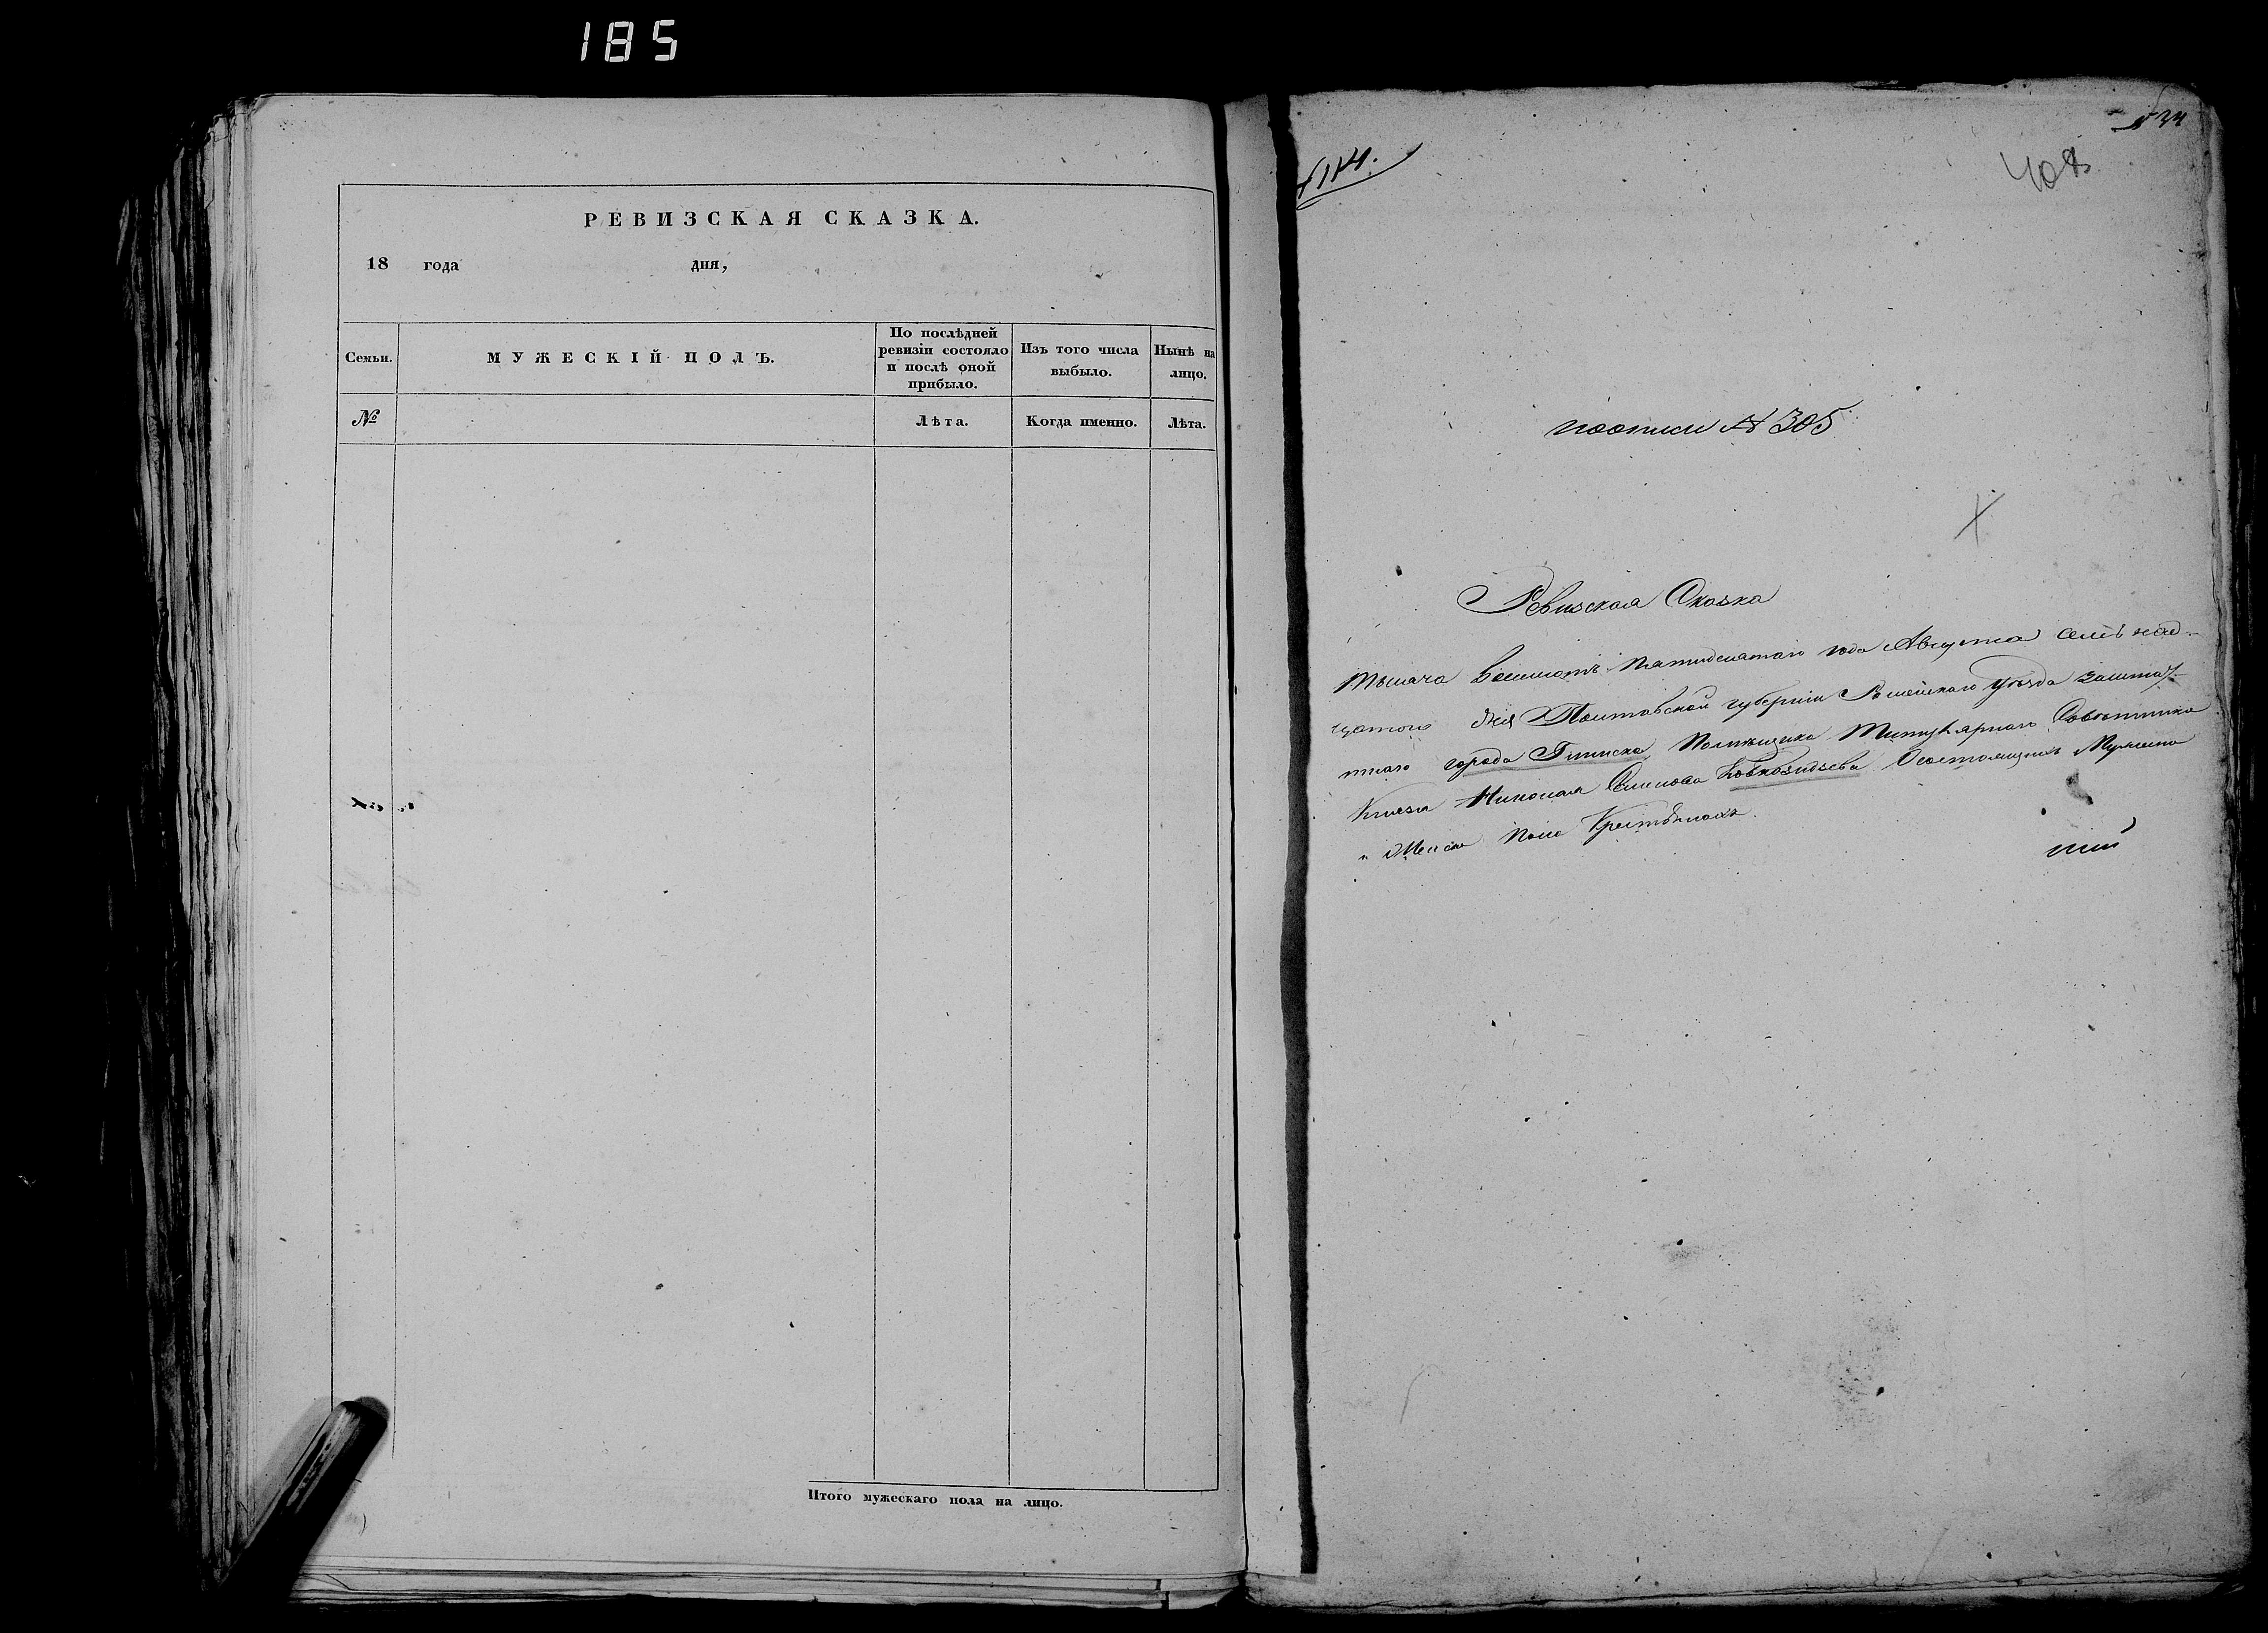 185
РЕВИЗСКАЯ СКАЗКА.
18 года дня,
Семьи.
МУЖЕСКІЙ ПОЛЪ.
По послѣдней
ревизіи состояло
и послѣ оной
прибыло.
Изъ того числа
выбыло.
Нынѣ на
лицо.
№
Лѣта.
Когда именно.
Лѣта.
Итого мужескаго пола на лицо.
408
по описи № 305
Ревизская Сказка
Тысяча восемьсотъ пятидесятаго года Августа семьнад-
цатого дня Полтавской губерніи Роменскаго уѣзда заштат-
наго города Глинска Помѣщика Титулярнаго Совѣтника
Князя Николая Семенова Состоящихъ Мужеска
и Женска пола Крестьянахъ.